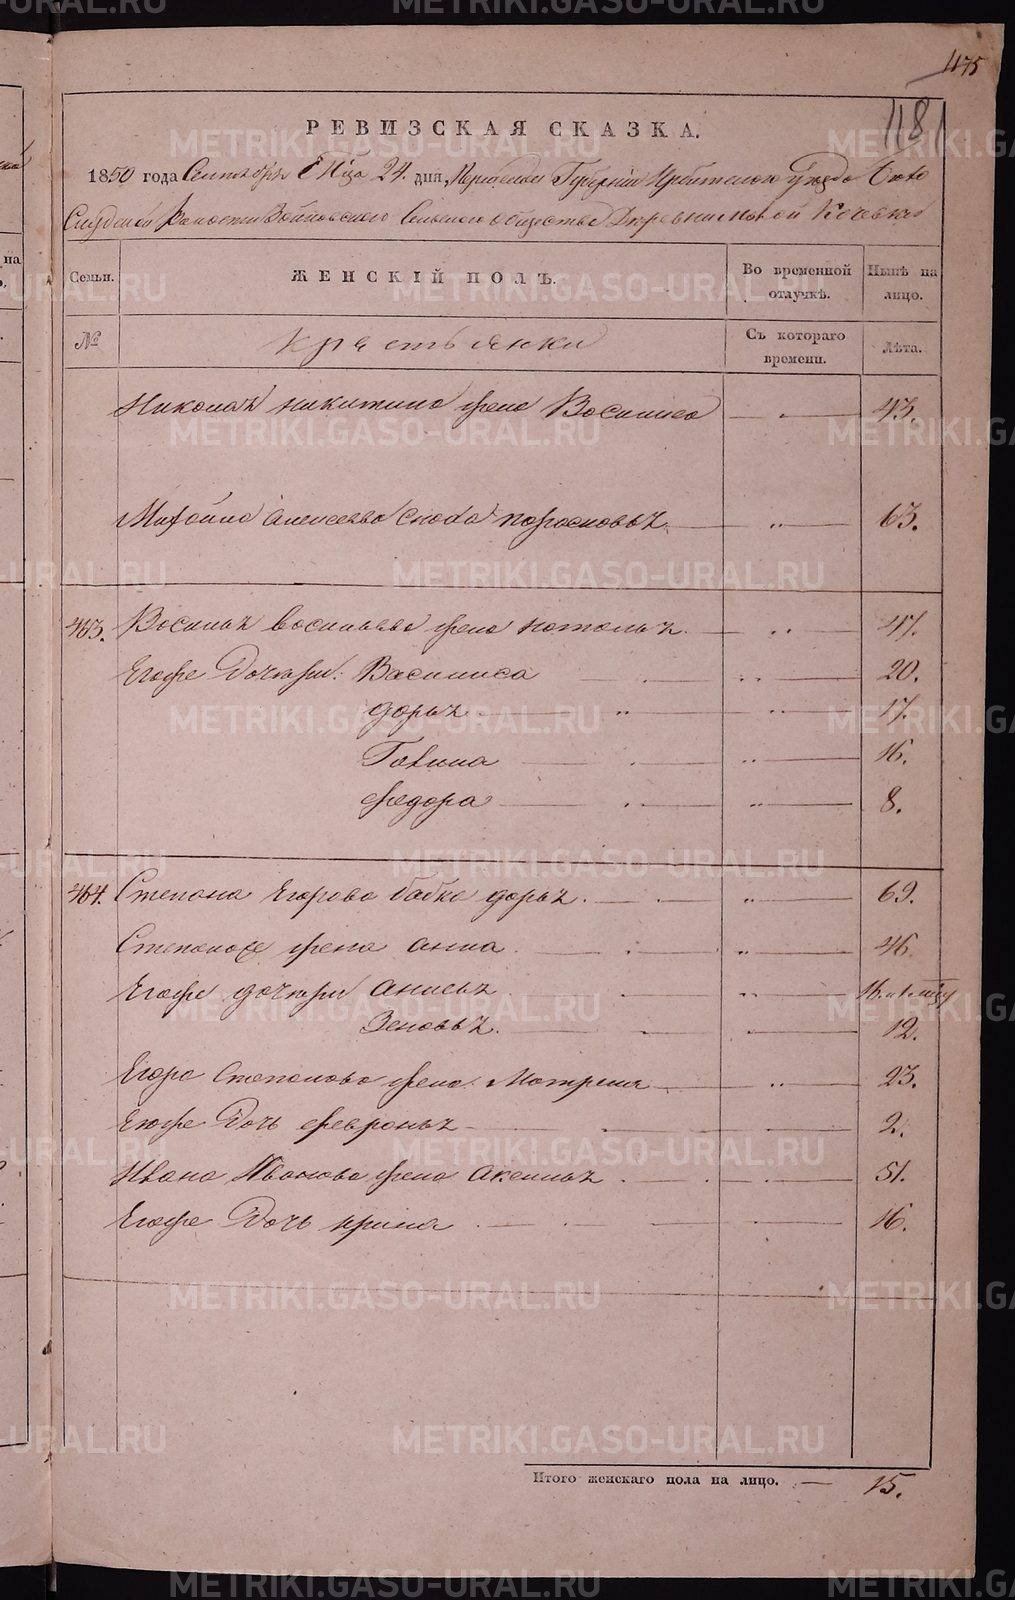 475
118
РЕВИЗСКАЯ СКАЗКА.
1850 года Сентября Мца 24. дня, Пермской Губерніи Ирбитскаго уезда
Слудской Волости Сельскаго общества Деревни Малой Кочевки
Семьи. ЖЕНСКІЙ ПОЛЪ. Во временной отлучкѣ. Нынѣ на лицо.
№ крестьянки Съ котораго времени. Лѣта.
Николая никитина жена Василиса 43.
Михайла Алексеева сноха парасковья 63.
463. Василья васильева жена наталья 47.
Егоже дочтери: Василиса 20.
дарья 17.
Галина 16.
федора 8.
464. Степана Егорова бабка дарья 69.
Степанова жена анна 46.
Егоже дочтери анисья
Зеновья 12.
Егора степанова жена Матрена 23.
Егоже Дочь февронья 2.
Ивана Иванова жена аксинья 51.
Егоже Дочь ирина 16.
Итого женскаго пола на лицо. 15.
METRIKI.GASO-URAL.RU